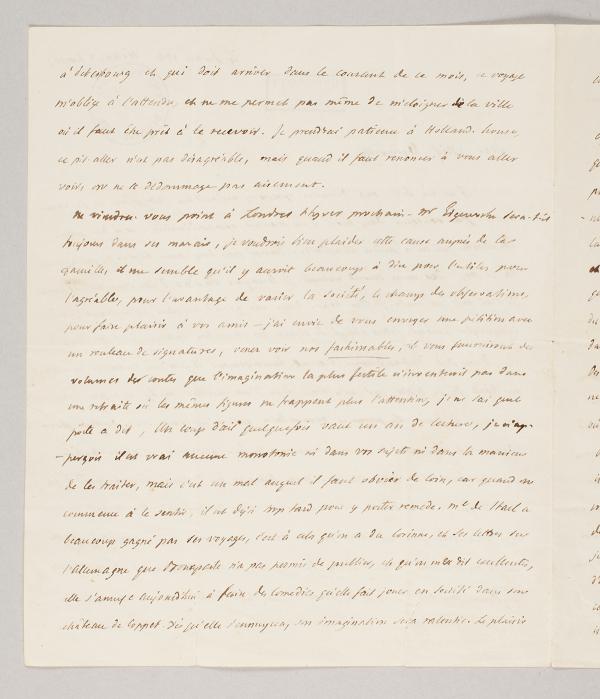 à Petersbourg et qui doit arriver dans le courant de ce mois, ce voyage
m'oblige à l'attendre, et ne me permet pas même de m'eloigner de la ville
où il faut être prêt à le recevoir. Je prendrai patience à Holland-house,
ce pis aller n'est pas désagréable, mais quand il faut renoncer à vous aller
voir, on ne se dédommage pas aisement.
ne viendrez vous point à Londres l'hyver prochain - Mr Edgeworth sera-t-il
toujours dans ses marais, je voudrois bien plaider cette cause auprès de la
famille, il me semble qu'il y auroit beaucoup à dire pour l'utile, pour
l'agréable, pour l'avantage de varier la société, le champ des observations,
pour faire plaisir à vos amis - j'ai envie de vous envoyer une pétition avec
un rouleau de signatures, venez voir nos fashionables, il vous fourniront des
volumes de contes que l'imagination la plus fertile n'inventeroit pas dans
une retraite où les mêmes figures ne frappent plus l'attention, je ne sai quel
poëte a dit, Un coup d'œil quelquefois vaut un an de lecture, je n'ap-
-perçois il est vrai aucune monotonie ni dans vos sujets ni dans la maniere
de les traiter, mais c'est un mal auquel il faut obvier de loin, car quand on
commence à le sentir, il est déjà trop tard pour y porter remede. Me de Stael a
beaucoup gagné par ses voyages, c'est à cela qu'on a du Corinne, et ses lettres sur
l'Allemagne que Bonaparte n'a pas permis de publier, et qu'on m'a dit excellentes,
elle s'amuse aujourd'hui à faire des comedies qu'elle fait jouer en société dans son
château de Coppet. Dès qu'elle s'ennuyera, son imagination sera ralentie. Le plaisir